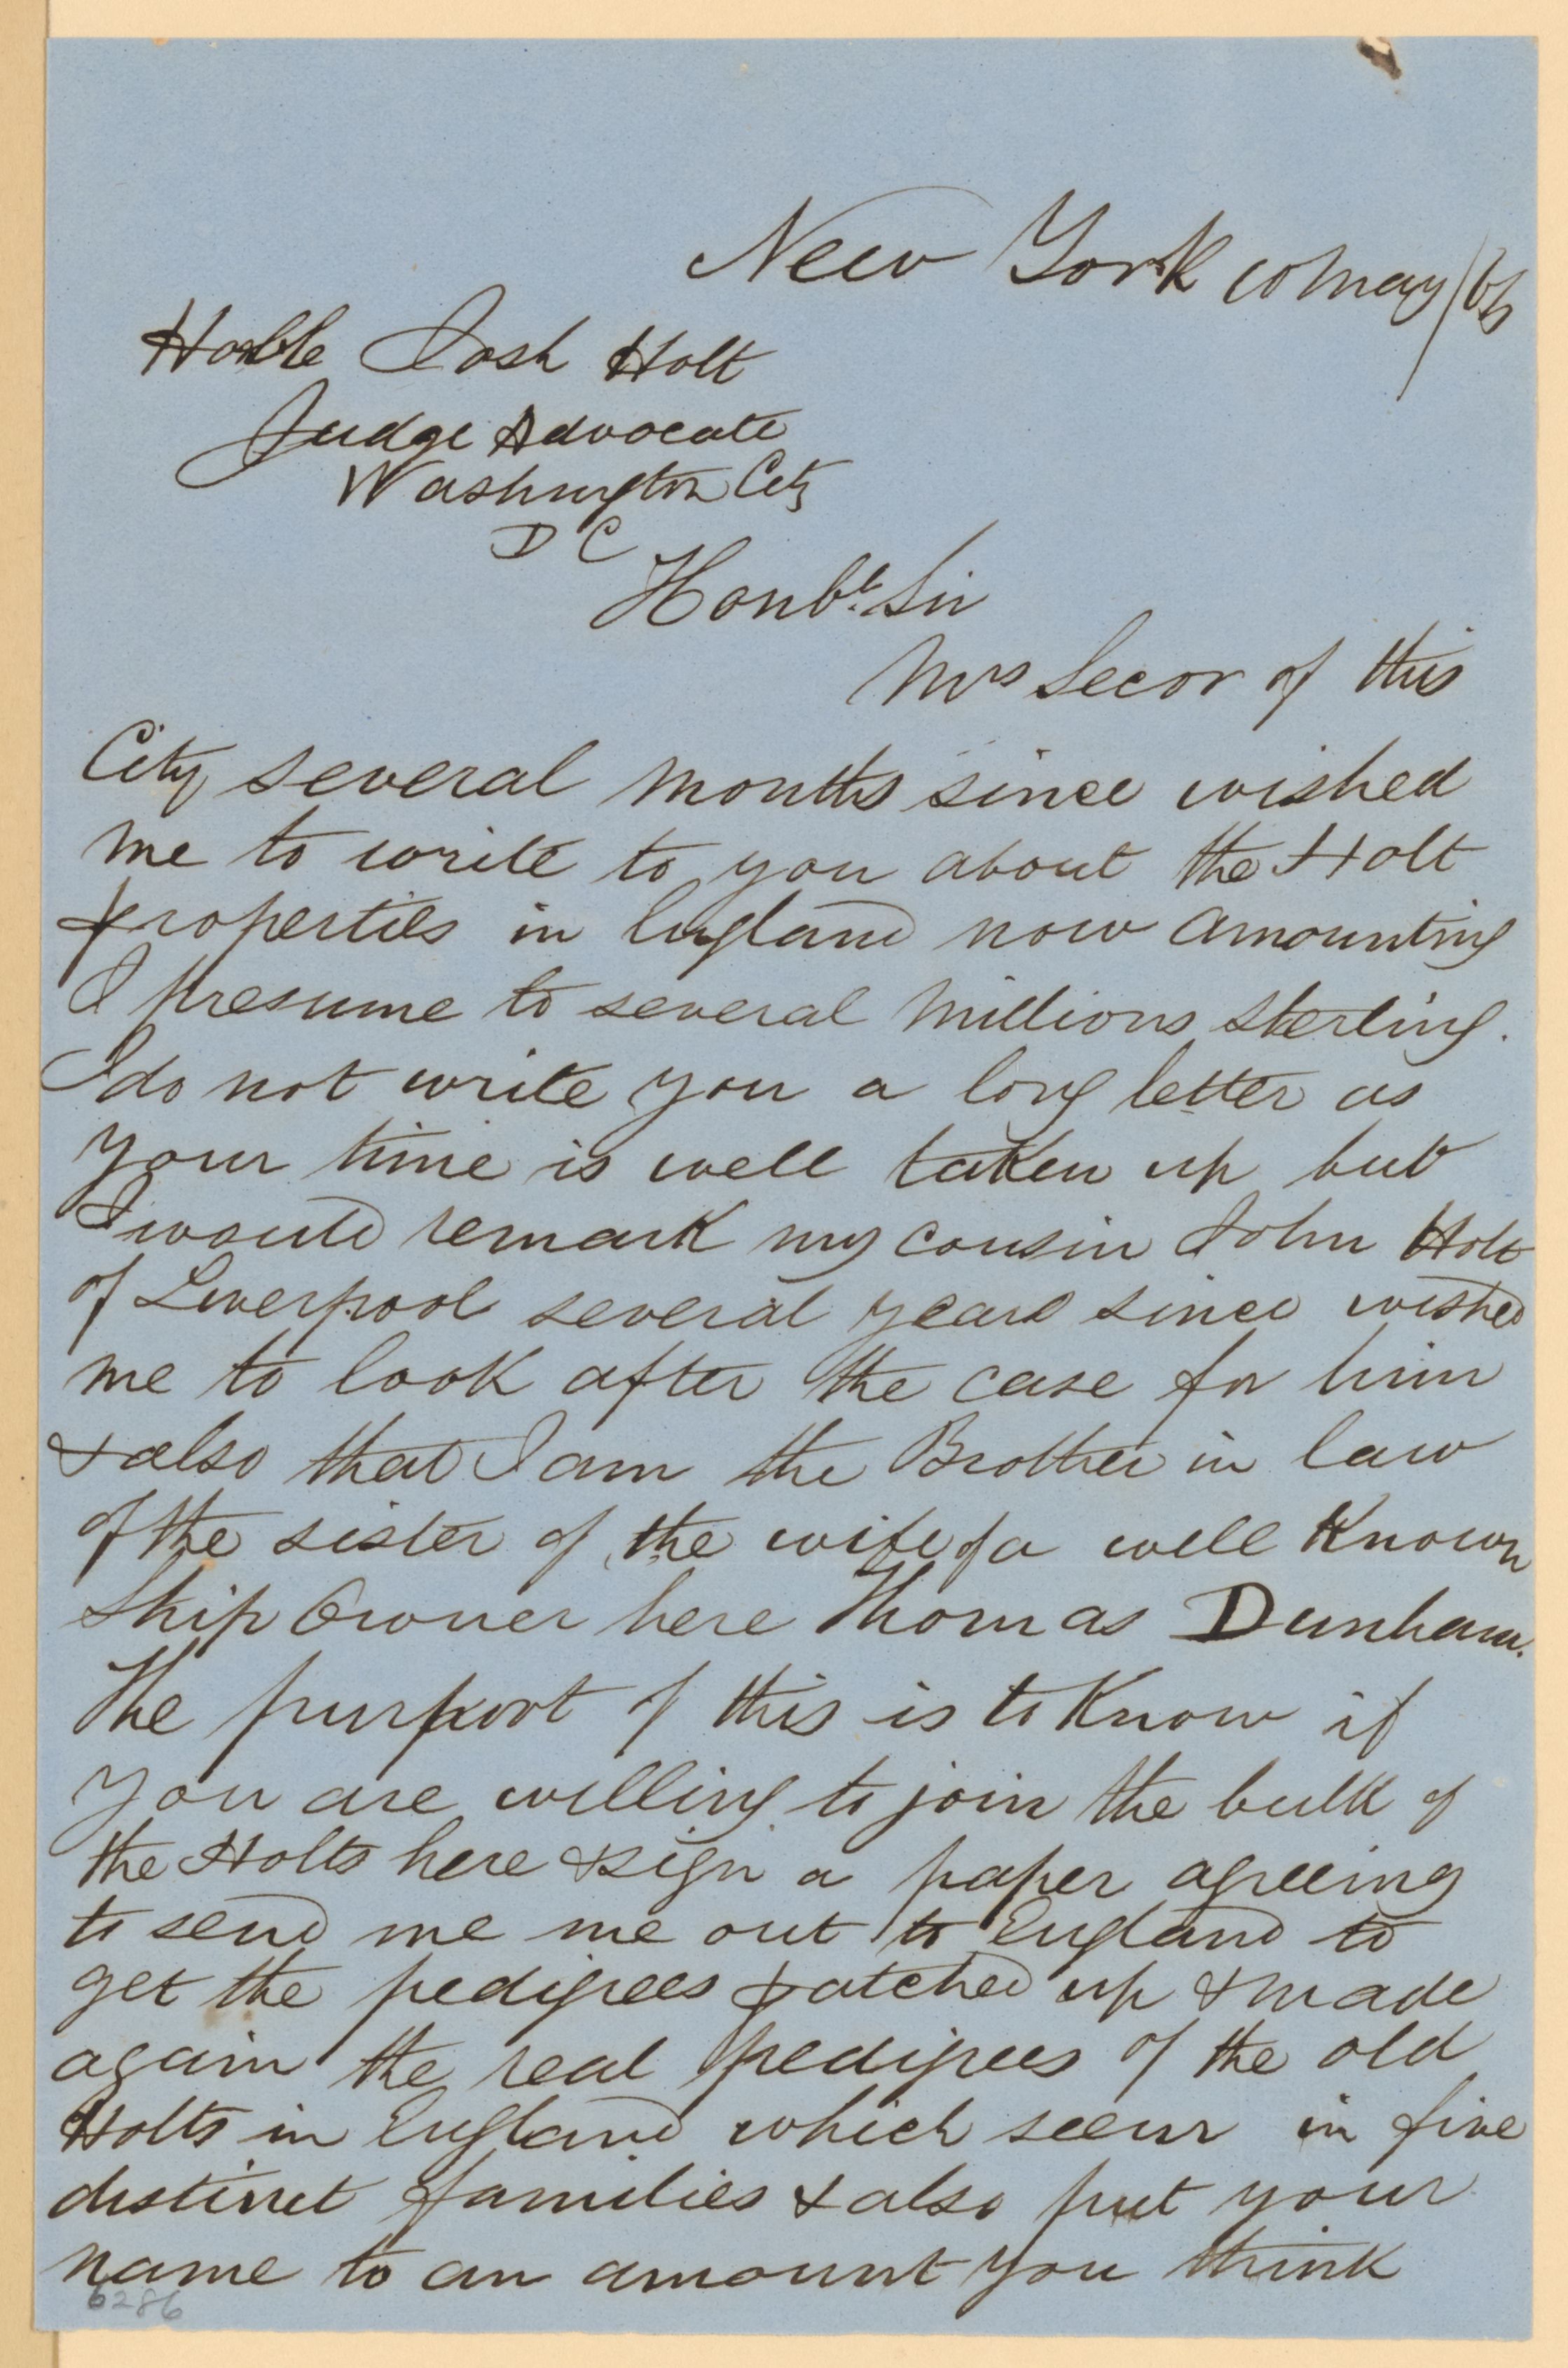 New York 10 May/66
Honble Josh Holt
Judge Advocate
Washington City
D C
Honble. Sir
Mrs Secor of this
City several months since wished
me to write to you about the Holt
properties in England now amounting
I presume to several Millions sterling.
I do not write you a long letter as
your time is well taken up but
I would remark my cousin John Holt
of Liverpool several years since wished
me to look after the case for him
& also that I am the Brother in law
of the sister of the wife of a well Known
Ship Owner here Thomas Dunham.
The purport of this is to Know if
you are willing to join the bulk of
the Holts here & sign a paper agreeing
to send me me out to England to
get the pedigrees patched up & made
again the real pedigrees of the old
Holts in England which seem in five
distinct families & also put your
name to an amount you think
6286